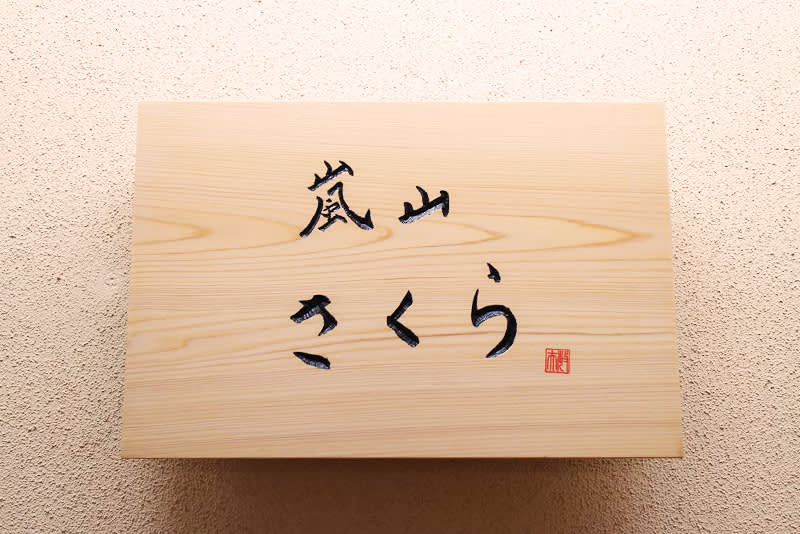 嵐山
さくら